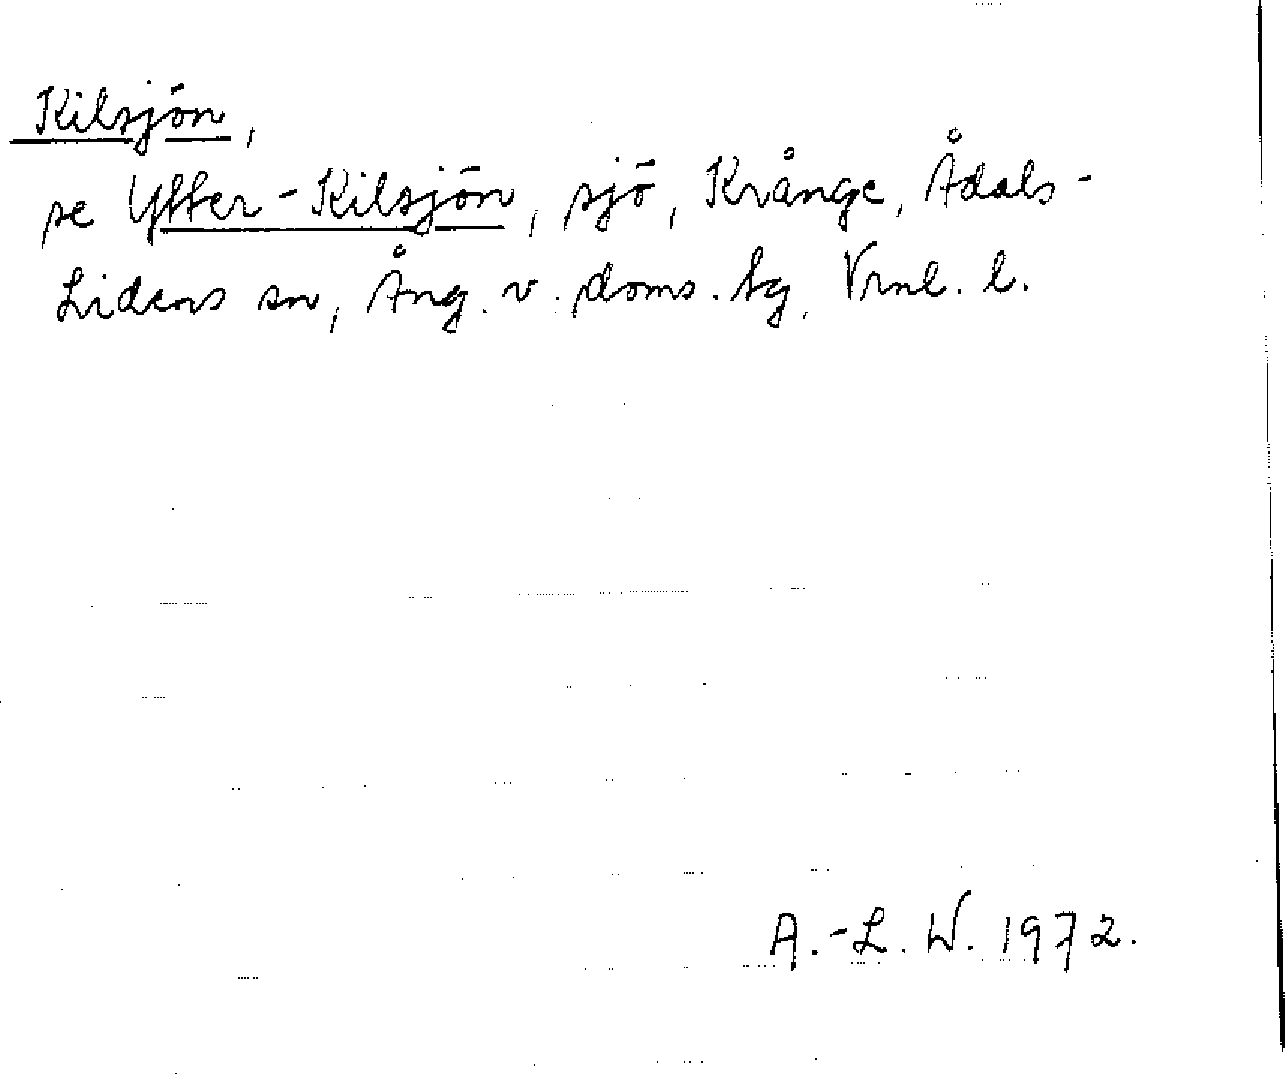 Kilsjön,
se Ytter-Kilsjön, sjö, Krånge, Ådals-
Lidens sn, Ång. v. doms. tg, Vrnl. l.
A.-L. W. 1972.